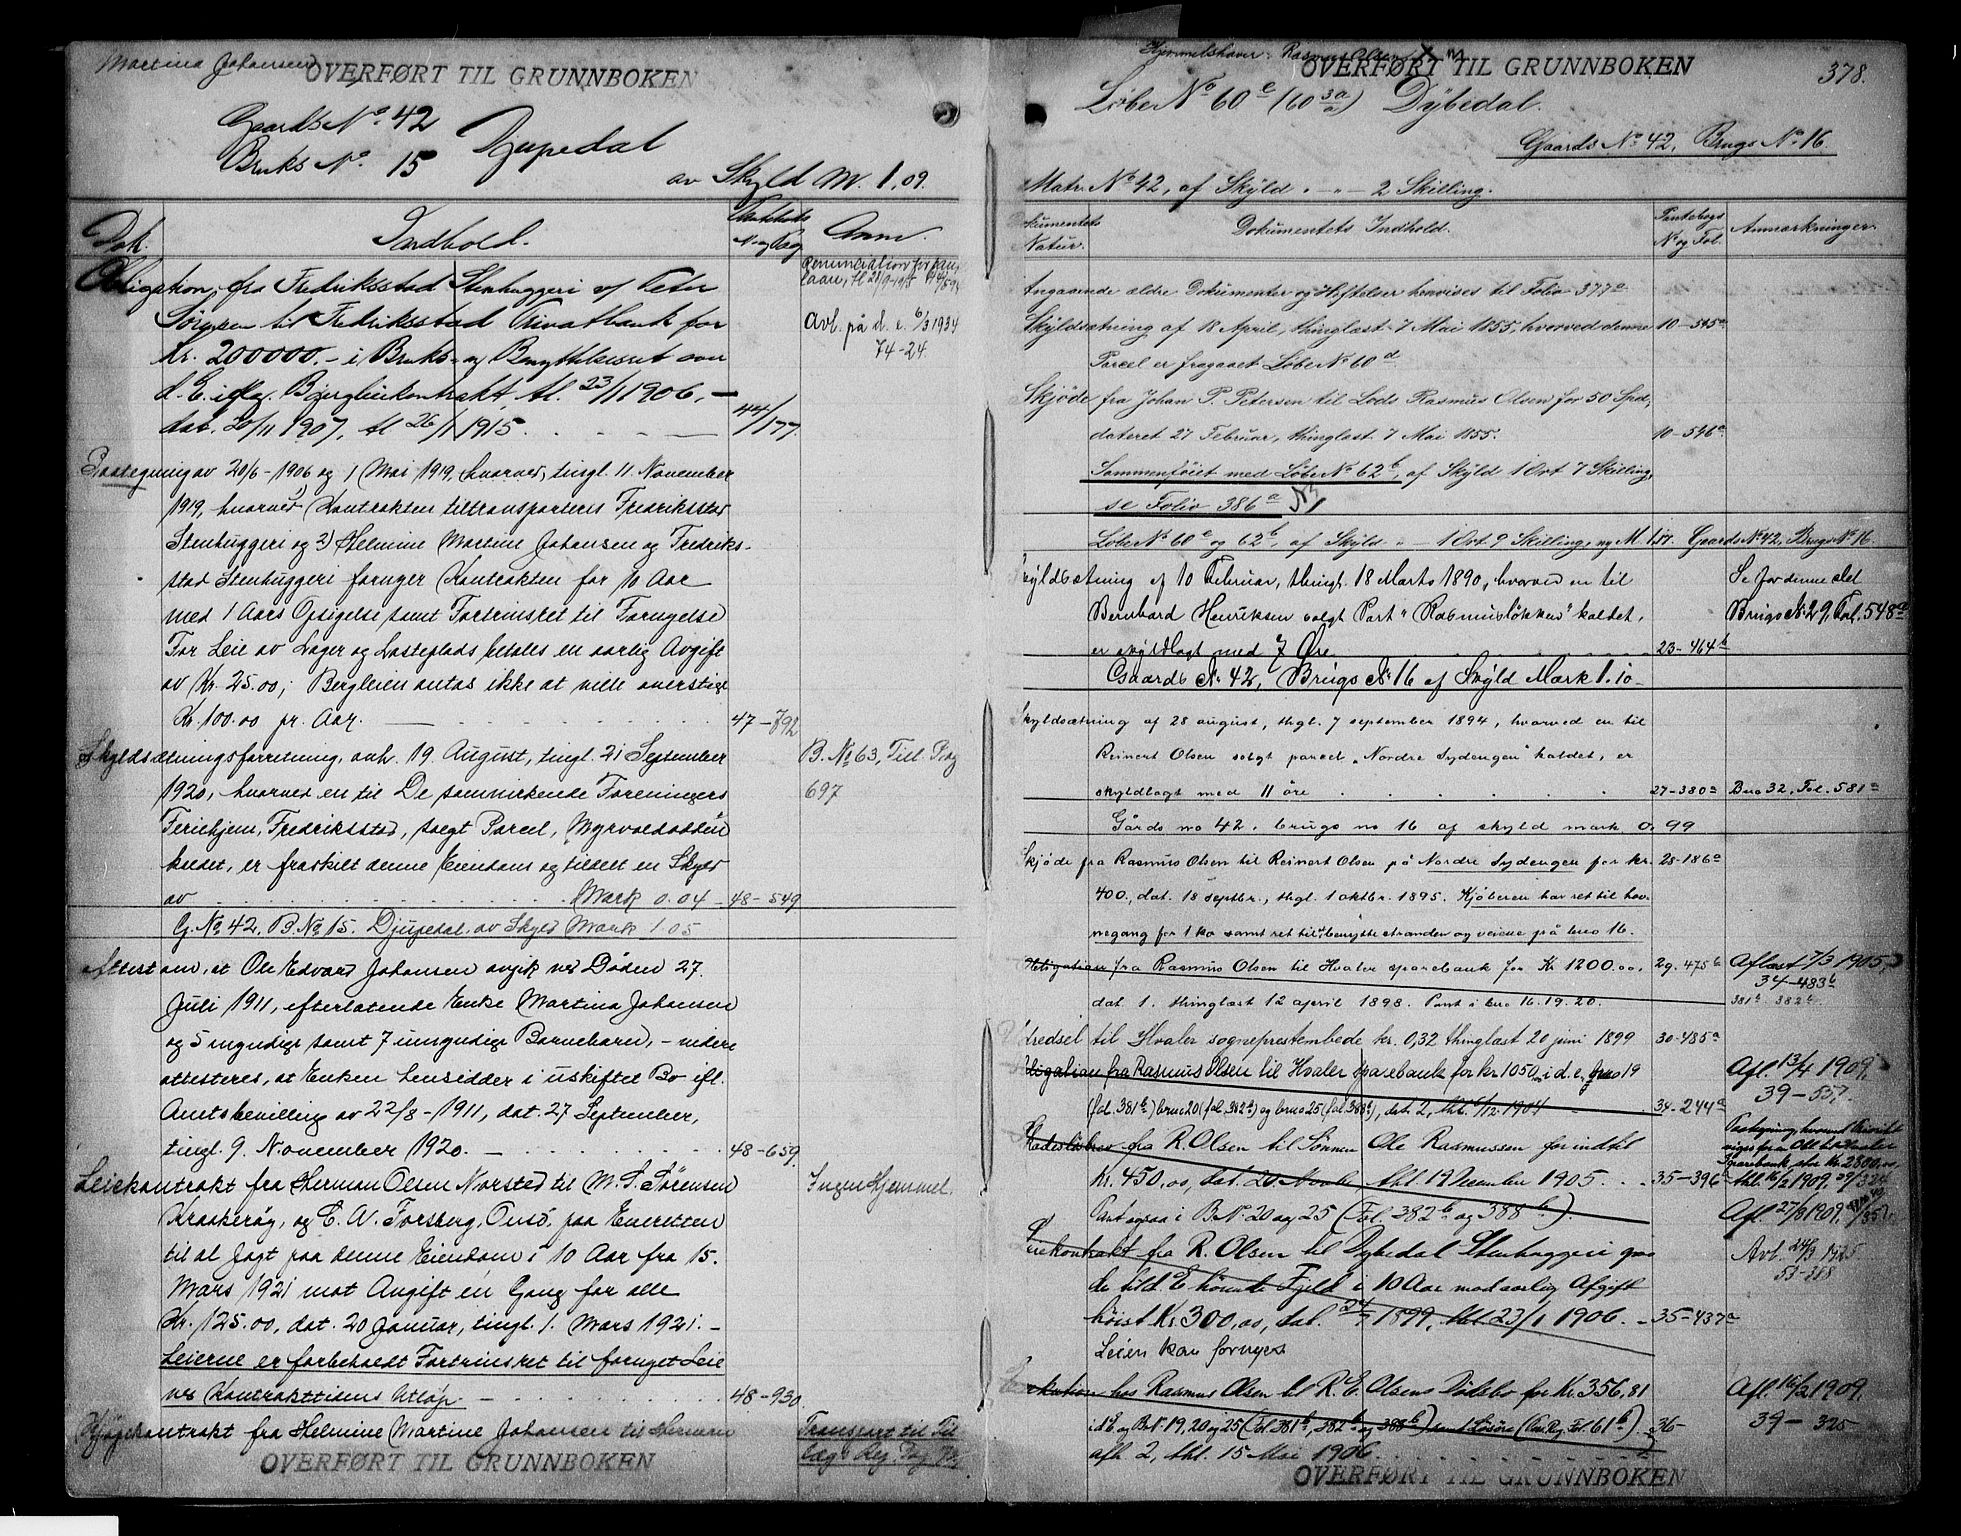 Martina Johansen
OVERFØRT TIL GRUNNBOKEN
Gaards No. 42
Bruks No. 15 Djupedal
av Skyld M. 1.09.
Dok. Indhold. Anm.
Obligation, fra Fredriksstad Stenhuggeri v/ Peter
til Fredriksstad Privatbank for
Kr. 200000.- i Bruks- og Benyttelsesret over
d. E. iflg. Bergleiekontrakt, tl. 23/1 1906, -
dat. 20/11 1907, tl 26/1 1915. 44/177.
Avl. på d. e. 6/3 1934
74-24.
Paategning av 20/6-1906 og 1 Mai 1919, tingl. 11. November
1919, hvorved 1) Kontrakten tiltransporteres Fredriksstad
Stenhuggeri og 2) Helmine Martine Johansen og Fredriks-
stad Stenhuggeri fornyer Kontrakten for 10 Aar
med 1 Aars Opsigelse samt Fortrinsret til Fornyelse
For Leie av Lager og Losteplads betales en aarlig Avgift
av Kr. 25.00; Bergleien antas ikke at ville overstige
Kr. 100.00 pr. Aar. 47-792
Skyldsætningsforretning, avh. 19 August, tingl. 21 September B. No 63, Till. Prag
1920, hvorved en til De samvirkende Foreningers 697
Feriehjem, Fredriksstad, solgt Parcel, Myrvoldodden
kaldet, er fraskilt denne Eiendom og tildelt en Skyld
av Mark 0.04 - 48-549
G. No 42, B. No 15. Djupedal av Skyld Mark 1.05
Attest om, at Ole Edvard Johansen avgik ved Døden 27.
Juli 1911, efterlatende Enke Martina Johansen
og 5 myndige samt 7 umyndige Barnebarn, - videre
attesteres, at Enken hensidder i uskiftet Bo ifl.
Amtsbevilling av 22/8-1911, dat. 27 September,
tingl. 9. November 1920. 48-659.
Leiekontrakt fra Herman Olsen Norsted til M. S. Sørensen Ingen Hjemmel.
Kraakerøy, og C. W. Forsberg, Onsø, paa Eneretten
til at Jagt paa denne Eiendom i 10 Aar fra 15.
Mars 1921 mot Avgift en Gang for alle
Kr. 125.00, dat. 20 Januar, tingl. 1. Mars 1921. -
Leierne er forbeholdt Fortrinsret til fornyet Leie
ved Kontrakttidens Utløp. 48-930.
Kjøpekontrakt fra Helmine Martine Johansen til Herman Transport til Til
OVERFØRT TIL GRUNNBOKEN
Hjemmelshaver: Rasmus Olsen
OVERFØRT TIL GRUNNBOKEN
378.
Løbe No 60 e (60 3a/a) Dybedal.
Gaards No 42, Brugs No 16.
Matr. No 42, af Skyld " - " - 2 Skilling.
Dokumentets Natur. Dokumentets Indhold. Pantebogs No og Fol. Anmærkninger.
Angaaende ældre Dokumenter og Heftelser henvises til Folio 377a
Skyldsætning af 18 April, thinglæst 7 Mai 1855, hvorved denne 10-545a
Parcel er fragaaet Løbe No 60 d
Skjøde fra Johan P. Petersen til Lods Rasmus Olsen for 50 Spd,
dateret 27 Februar, thinglæst 7 Mai 1855. 10-546a
Sammenføiet med Løbe No 62 b, af Skyld 1 Ort 7 Skilling,
se Folio 386 a
Løbe No 60 e og 62 b, af Skyld " - 1 Ort 9 Skilling, ny M. 1.17. Gaards No 42, Brugs No 16.
Skyldsætning af 10 Februar, thingl. 18 Marts 1890, hvorved en til Se for denne Del
Bernhard Henriksen solgt Part "Rasmusløkken" kaldet, Brugs No 29, Fol. 548a
er skyldlagt med 7 Øre 23-464b
Gaards No 42, Brugs No 16 af Skyld Mark 1.10-
Skyldsætning af 28 august, thgl. 7 september 1894, hvorved en til
Reinert Olsen solgt parcel "Nordre Sydengen" kaldet, er
skyldlagt med 11 öre 27-380a Bno 32, Fol. 581a
Gårds no 42, brugs no 16 af skyld mark 0.99
Skjøde fra Rasmus Olsen til Reinert Olsen på Nordre Sydengen for kr. 28-186a
400., dat. 18 septbr., thgl. 1 oktbr. 1895. Kjøberen har ret til hav-
negang for 1 ko samt ret til at benytte stranden og veiene på bno 16.
Obligation fra Rasmus Olsen til Hvaler sparebank for Kr 1200.00, 29-475b Aflæst 7/3 1905,
34-483b
dat. 1. thinglæst 12 april 1898. Pant i bno 16. 19. 20. 381b 382b
Utredsel til Hvaler sogneprestembede kr. 0,32 thinglæst 20 juni 1899 30-485a
Obligation fra Rasmus Olsen til Hvaler sparebank for kr 1050,- i d. e. bno 19 Afl. 13/4 1909,
(fol. 381b) bno 20 (fol. 382b) og bno 25 (fol. 388b), dat. 2, thl. 6/12 1904 34-244a 39-537.
fra R. Olsen til Sønnen Ole Rasmussen for indtil
Kr. 450,00, dat. 20. Novbr, thl. 19 December 1905. 35-396
Sparebank stor Kr. 2800,00,
thl. 16/2 1909, 39/324
Pant ogsaa i B. No. 20 og 25 (Fol. 382b og 388b).
Leiekontrakt fra R. Olsen til Dybedal Stenhuggeri paa Avl. 24/3 1925
de tild. E. hörende Fjeld i 10 Aar mod aarlig Afgift 53-318
höist Kr 300,00, dat. 1899, thl. 23/1 1906. - 35-437a
Leien kan fornyes
hos Rasmus Olsen til R. E. Olsens Dødsbo for Kr. 356,81 Afl. 16/2 1909.
i d E og B No. 19, 20 og 25 (Fol. 381b, 382b og 388b) samt Løsøre 36- 39-325
afh. 2, thl. 15 Mai 1906.
OVERFØRT TIL GRUNNBOKEN